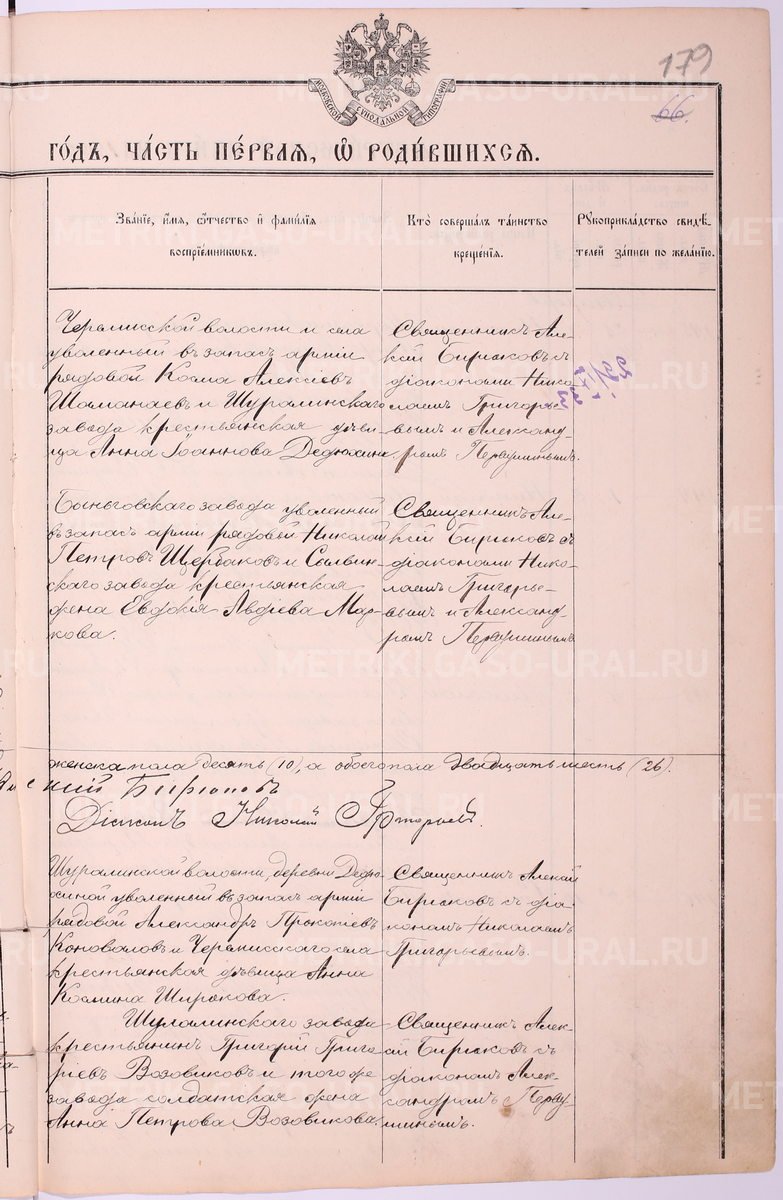 179
66.
МОСКОВСКОЙ СѴНОДАЛЬНОЙ ТИПОГРАФІИ
го́дъ, ча́сть пе́рвая, ѡ҆ роди́вшихсѧ.
Зва́нїе, и҆́мѧ, ѻ҆́тчество и҆ фами́лїѧ
воспрїе́мникѡвъ.
Кто̀ соверша́лъ та́инство
креще́нїѧ.
Рꙋкоприкла́дство свидѣ́-
телей за́писи по жела́нїю.
Черемисской волости и села
уволенный въ запасъ арміи
рядовой Косма Алексіевъ
Шаманаевъ и Шуралинскаго
завода крестьянская дѣви-
ца Анна Іоаннова Дедюхина.
Священникъ Але-
ксій Бирюковъ съ
діаконами Нико-
лаемъ Григорье-
вымъ и Александ-
ромъ Первушинымъ.
Быньговскаго завода уволенный
въ запасъ арміи рядовой Николай
Петровъ Щербаковъ и Сылвин-
скаго завода крестьянская
жена Евдокія Авдіева Мар-
кова.
Священникъ Але-
ксій Бирюковъ съ
діаконами Нико-
лаемъ Григорье-
вымъ и Александ-
ромъ Первушинымъ
женска пола десять (10), а обоего пола двадцать шесть (26).
ксій Бирюковъ
Діаконъ Николай Григорьев.
Шуралинской волости, деревни Дедю-
хиной уволенный въ запасъ арміи
рядовой Александръ Прокопіевъ
Коноваловъ и Черемисскаго села
крестьянская дѣвица Анна
Космина Широкова.
Священникъ Алексій
Бирюковъ съ діа-
кономъ Николаемъ
Григорьевымъ.
Шуралинскаго завода
крестьянинъ Григорій Григо-
ріевъ Возовиковъ и того же
завода солдатская жена
Анна Петрова Возовикова.
Священникъ Алек-
сій Бирюковъ съ
діакономъ Алек-
сандромъ Перву-
шинымъ.
METRIKI.GASO-URAL.RU